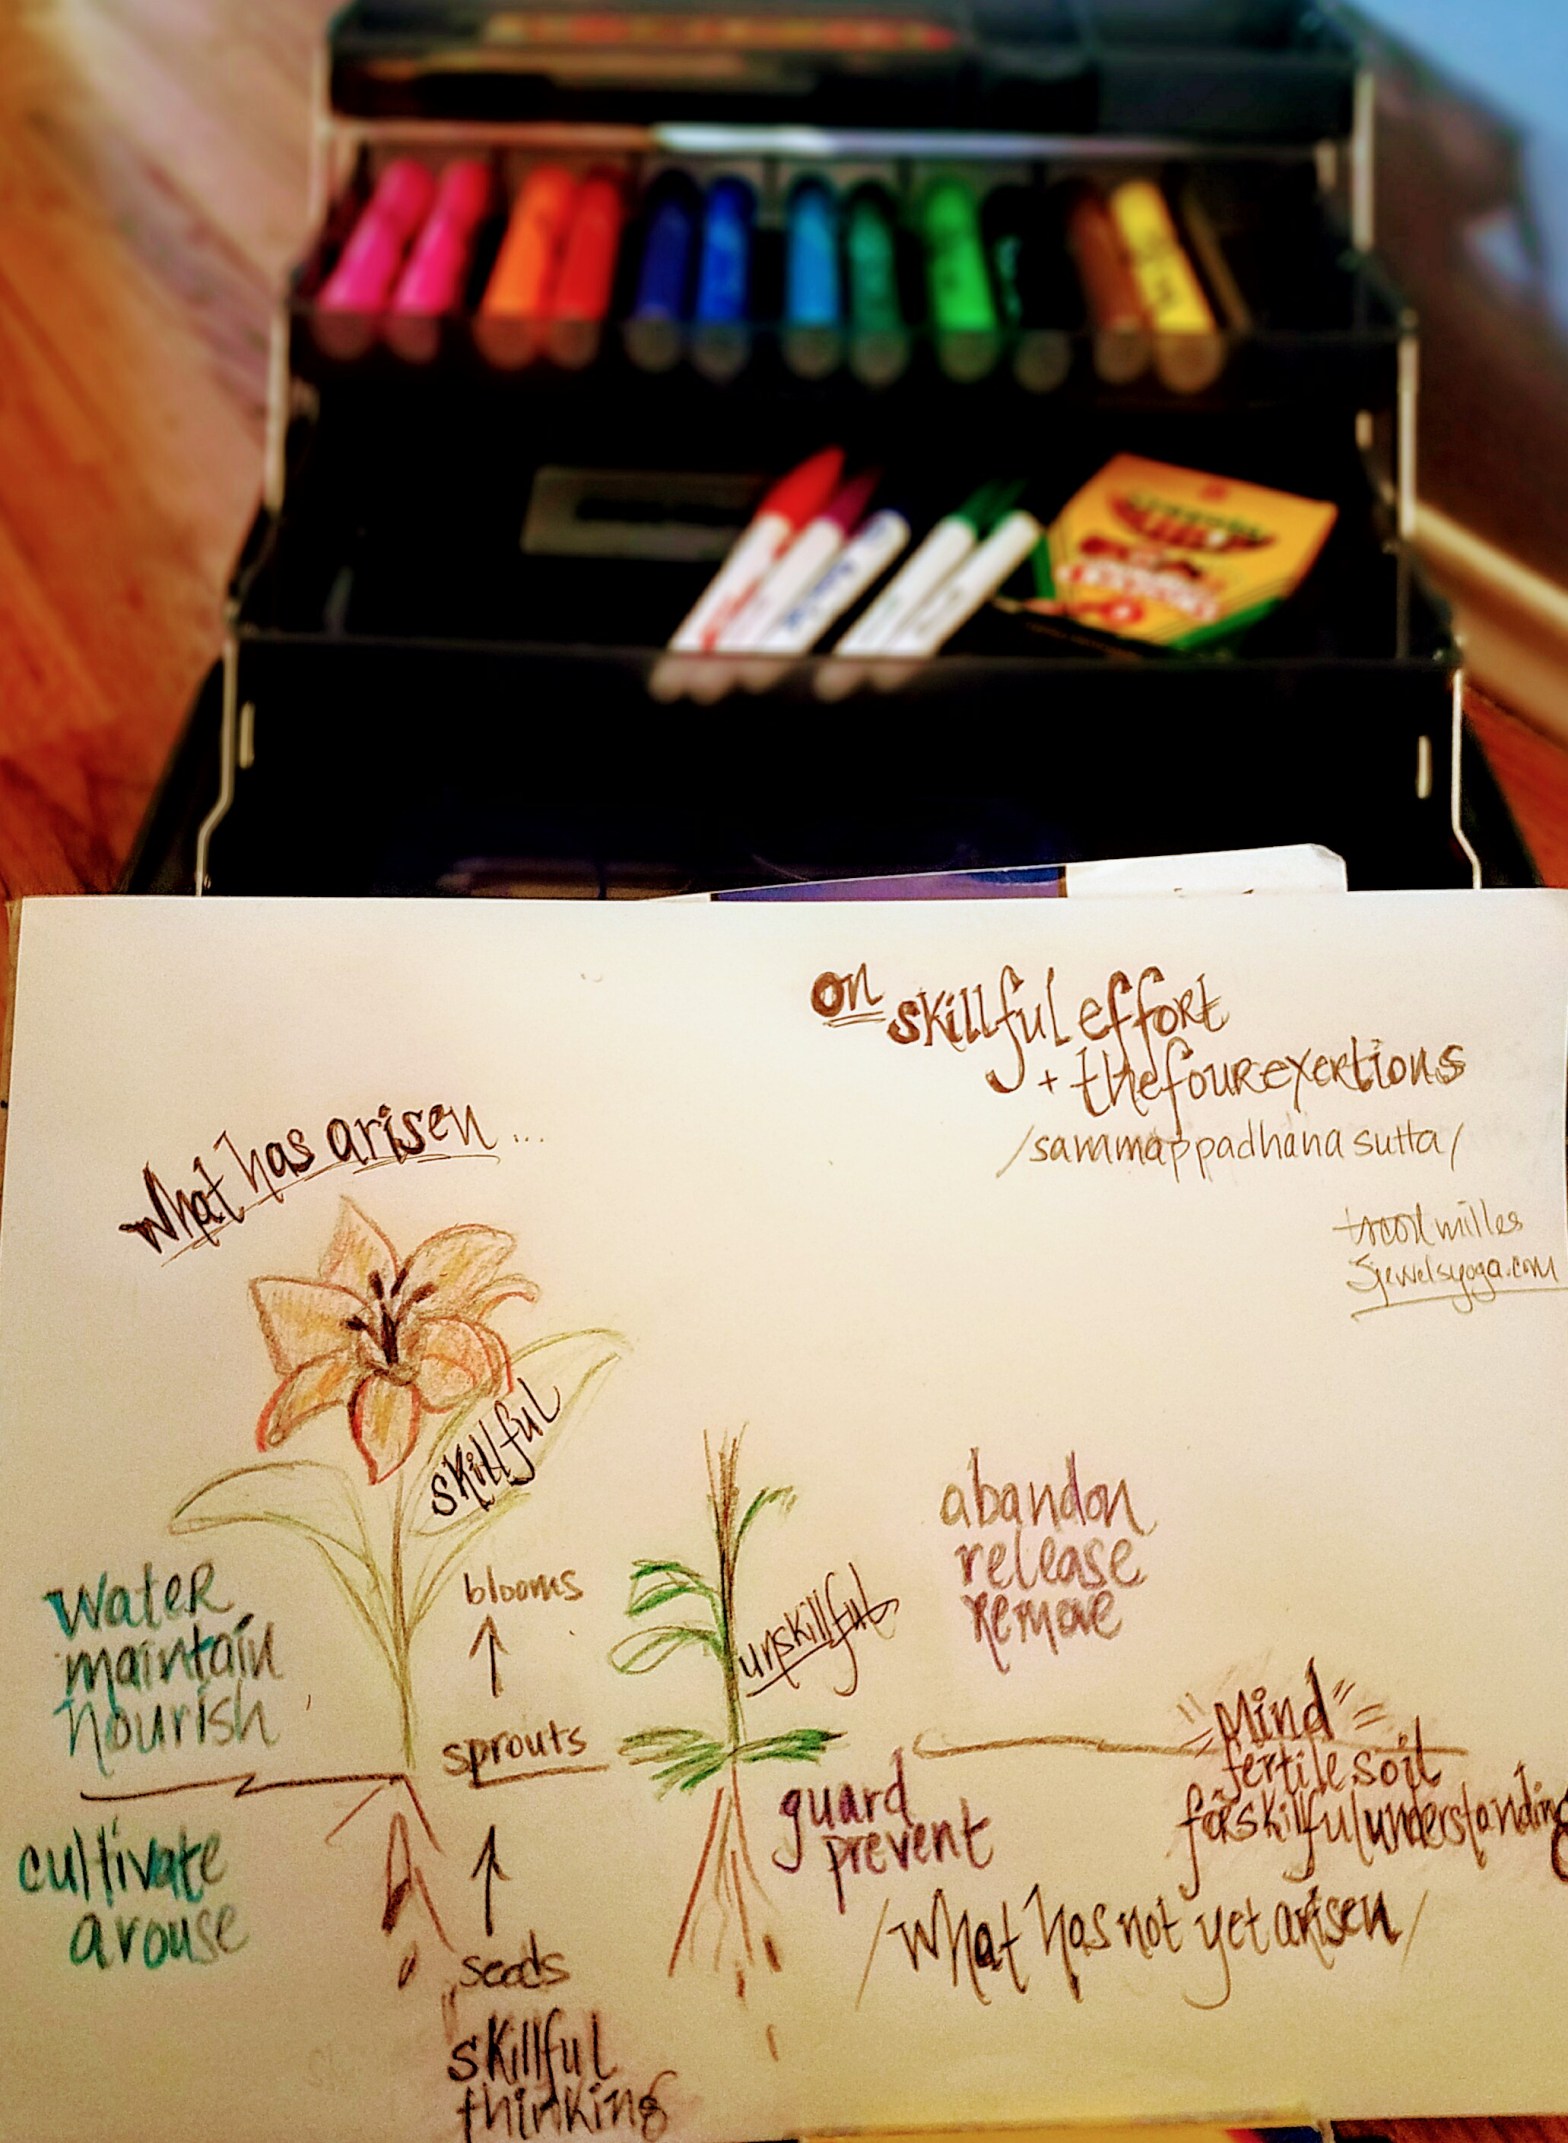 on
skillful effort
+ the four exertions
/sammappadhana sutta/
5jewelsyoga.com
what has arisen...
skillful
water
maintain
nourish
blooms
sprouts
unskillful
abandon
release
remove
"Mind"
fertile soil
for skillful understanding
guard
prevent
/what has not yet arisen/
cultivate
arouse
seeds
skillful
thinking